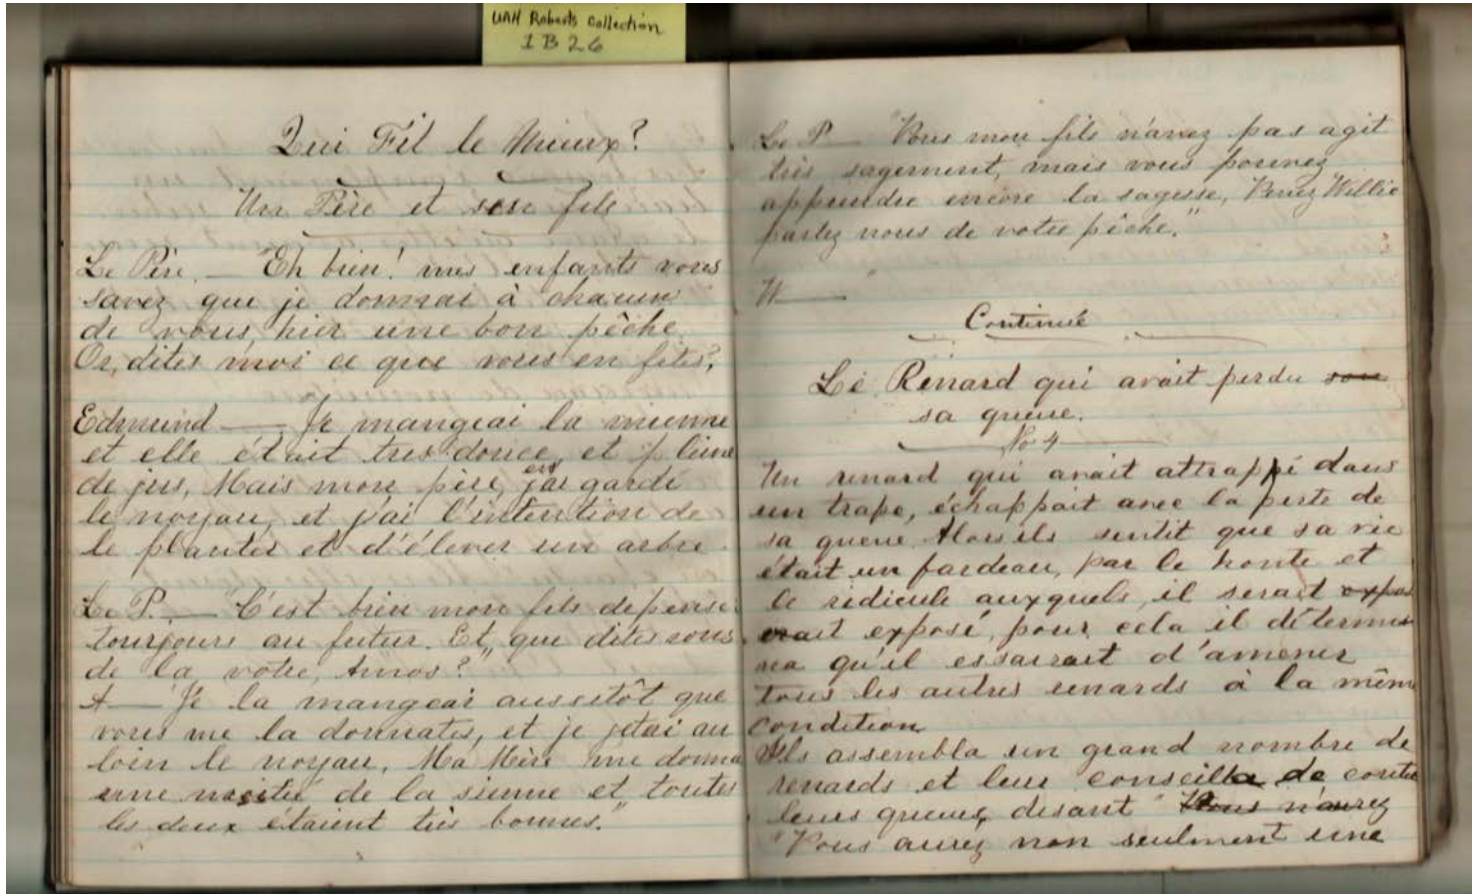 UAH Roberts Collection
1B26
Qui Fit le Mieux?
Un Père et ses fils
Le Père. — "Eh bien! mes enfants vous
savez que je donnai à chacun
de vous, hier une bon pêche
Or, dites moi ce que vous en fites?
Edmund — Je mangeai la mienne
et elle était tres douce, et pleine
de jus, Mais mon père, j'ai en gardé
le noyau, et j'ai l'intention de
le planter et d'élever un arbre.
Le P. — "C'est bien mon fils dépense
tourjours au futur. Et, que dites vous
de la votre, Amos?"
A — "Je la mangeai aussitôt que
vous me la donnates, et je jetai au
loin le noyau. Ma Mère me donna
une moitié de la sienne et toutes
les deux étaient très bonnes."
Le P — "Vous mon fils n'avez pas agit
très sagement, mais vous pouvez
apprendre encore la sagesse, Venez Willie
parlez nous de votre pêche."
W — "
Continué
Le Renard qui avait perdu son
sa queue.
No 4
Un renard qui avait attrappé dans
un trape, échappait avec la perte de
sa queue. Alors ils sentit que sa vie
était un fardeau, par le honte et
le ridicule auxquels, il serait expos
erait exposé, pour cela il détermi
na qu'il essairait d'amener
tous les autres renards à la même
condition.
Ils assembla un grand nombre de
renards et leur conseilla de couter
leurs queues, disant "Vous n'aurez
"Vous aurez non seulment une